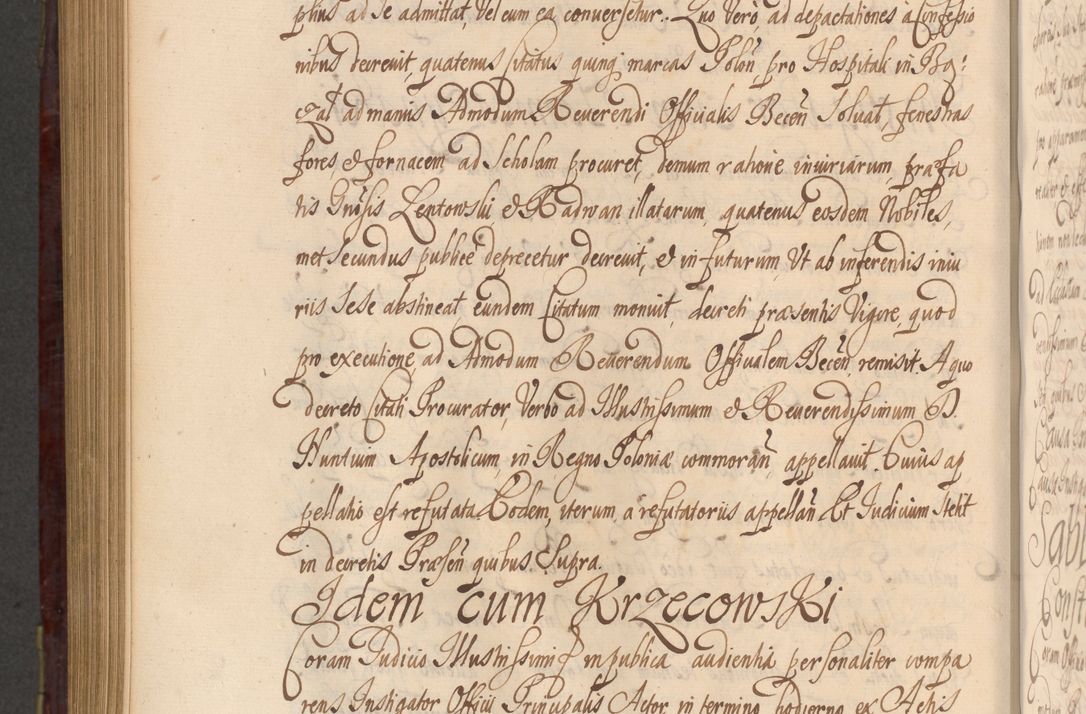 plius ad se admittat, Vel cum ea conversetur. Quo Vero ad depactationes a Confessio
nibus decrevit, quatenus Citatus quinq marcas Polon pro Hospitali in
ad manus Admodum Reverendi Officialis Becen Solvat, fenestras
fores, & fornacem ad Scholam procuret, demum ratione iniuriarum, præfa
tis Gnosis Zentowski & Radwan illatarum, quatenus eosdem Nobiles,
met secundus publice deprecetur decrevit, & in futurum, Ut ab inferendis iniu
riis Sese abstineat, eundem Citatum moniuit, decreti præsentis Vigore, quod
pro executione, ad Admodum Reverendum Officialem Becen, remisit. A quo
decreto Citati Procurator, Verbo ad Illustrissimum & Reverendissimum D.
Nuntium Apostolicum, in Regno Poloniæ commoran, appellavit. Cuius ap
pellatio est refutata Eodem, iterum, a refutatoriis appellan Et Iudicium stetit
in decretis Præsen quibus Supra.
Idem cum Krzecowski
Coram Iudicio Illustrissimi in publica audientia personaliter compa
rens Instigator Officii Principalis Actor in termino hodierno ex Actis